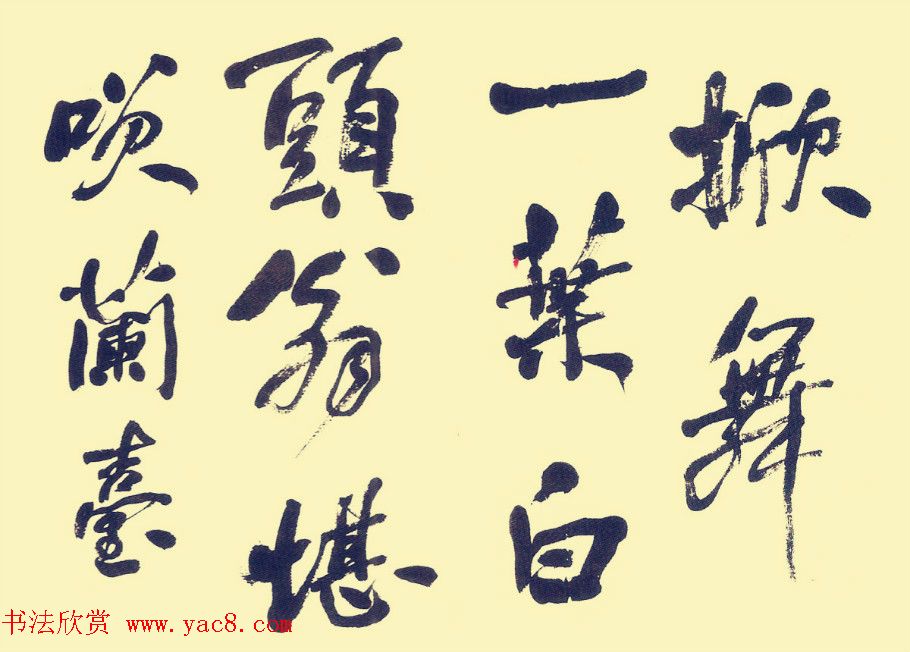 掀舞
一葉白
頭翁堪
笑蘭臺
书法欣赏 www.yac8.com